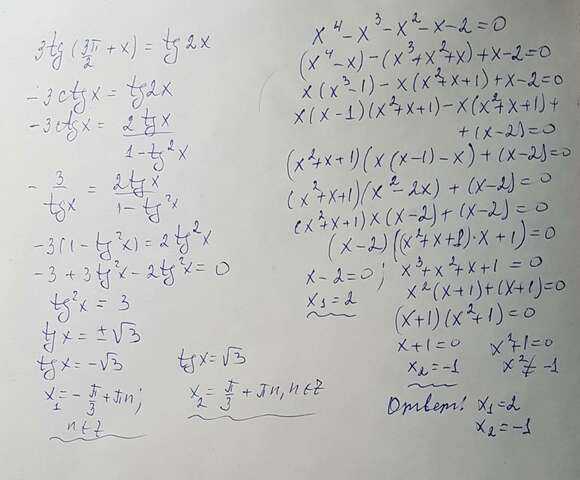 3tg(3π/2 + x) = tg 2x
-3ctgx = tg2x
-3ctgx = 2tgx / (1-tg²x)
-3/tgx = 2tgx / (1-tg²x)
-3(1-tg²x) = 2tg²x
-3+3tg²x-2tg²x = 0
tg²x = 3
tgx = ±√3
tgx = -√3 tgx = √3
x₁ = -π/3 + πn; x₂ = π/3 + πn, n∈Z
n∈Z
x⁴-x³-x²-x-2=0
(x⁴-x)-(x³+x²+x)+x-2=0
x(x³-1)-x(x²+x+1)+x-2=0
x(x-1)(x²+x+1)-x(x²+x+1)+
+(x-2)=0
(x²+x+1)(x(x-1)-x)+(x-2)=0
(x²+x+1)(x²-2x)+(x-2)=0
(x²+x+1)x(x-2)+(x-2)=0
(x-2)((x²+x+1)·x+1)=0
x-2=0; x³+x²+x+1=0
x₁=2 x²(x+1)+(x+1)=0
(x+1)(x²+1)=0
x+1=0 x²+1=0
x₂=-1 x²≠-1
Ответ: x₁=2
x₂=-1